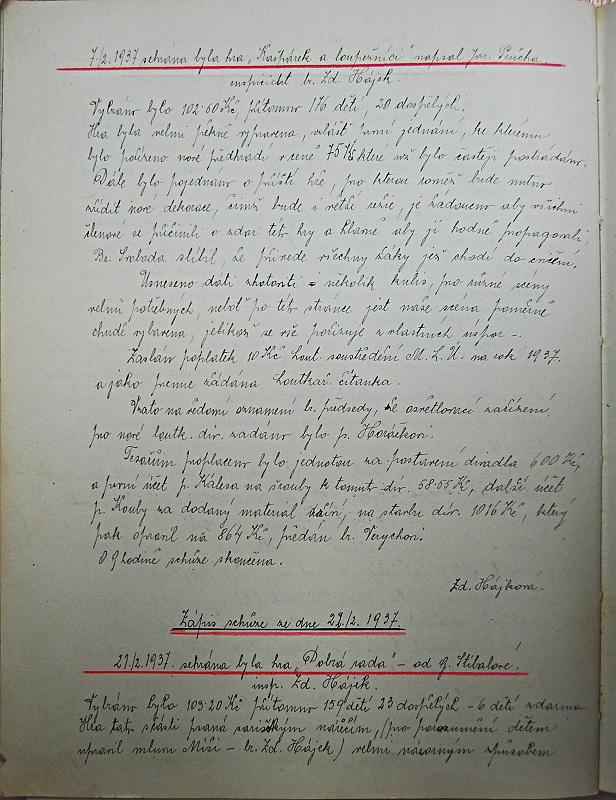 7./2. 1937 sehrána byla hra „Kašpárek a loupežníci" napsal Jar. Průcha
inspicient br. Zd. Hájek.
Vybráno bylo 102·60 Kč, přítomno 176 dětí, 20 dospělých.
Hra byla velmi pěkně vypravena, zvláště první jednání, ke kterému
bylo pořízeno nové předhradí v ceně 75 Kč které už bylo častěji postrádáno.
Dále bylo pojednáno o příští hře, pro kterou rovněž bude nutno
zřídit nové dekorace, čímž bude i větší režie, je žádoucno aby všichni
členové se přičinili o zdar této hry a hlavně aby ji hodně propagovali,
Br. Svoboda slíbil, že přivede všechny žáky jež chodí do cvičení.
Usneseno dáti zhotoviti několik kulis, pro různé scény
velmi potřebných, neboť po této stránce jest naše scéna poměrně
chudě vybavena, jelikož se vše pořizuje z vlastních úspor –.
Zaslán poplatek 10 Kč Lout. soustředění M. L. Ú. na rok 1937.
a jako premie žádána Loutkář. čítanka.
Vzato na vědomí oznámení br. předsedy, že osvětlovací zařízení
pro nové loutk. div. zadáno bylo p. Horáčkovi.
Tesařům proplaceno bylo jednotou za postavení divadla 600 Kč,
a první účet p. Kálesa na šrouby k tomuto div. 58·55 Kč, další účet
p. Kouby za dodaný material na stavbu div. 1016 Kč, který
pak opravil na 864 Kč, předán br. Verychovi.
O 9 hodině schůze skončena.
Zd. Hájková.
Zápis schůze ze dne 22./2. 1937.
21./2. 1937. sehrána byla hra „Dobrá rada" – od q. Stibalové.
insp. Zd. Hájek.
Vybráno bylo 103·20 Kč přítomno 159 dětí 23 dospělých – 6 dětí zdarma
Hra tato z části psaná nářečím, (pro porozumění dětem
upravil mluvu Míši – br. Zd. Hájek) velmi názorným způsobem